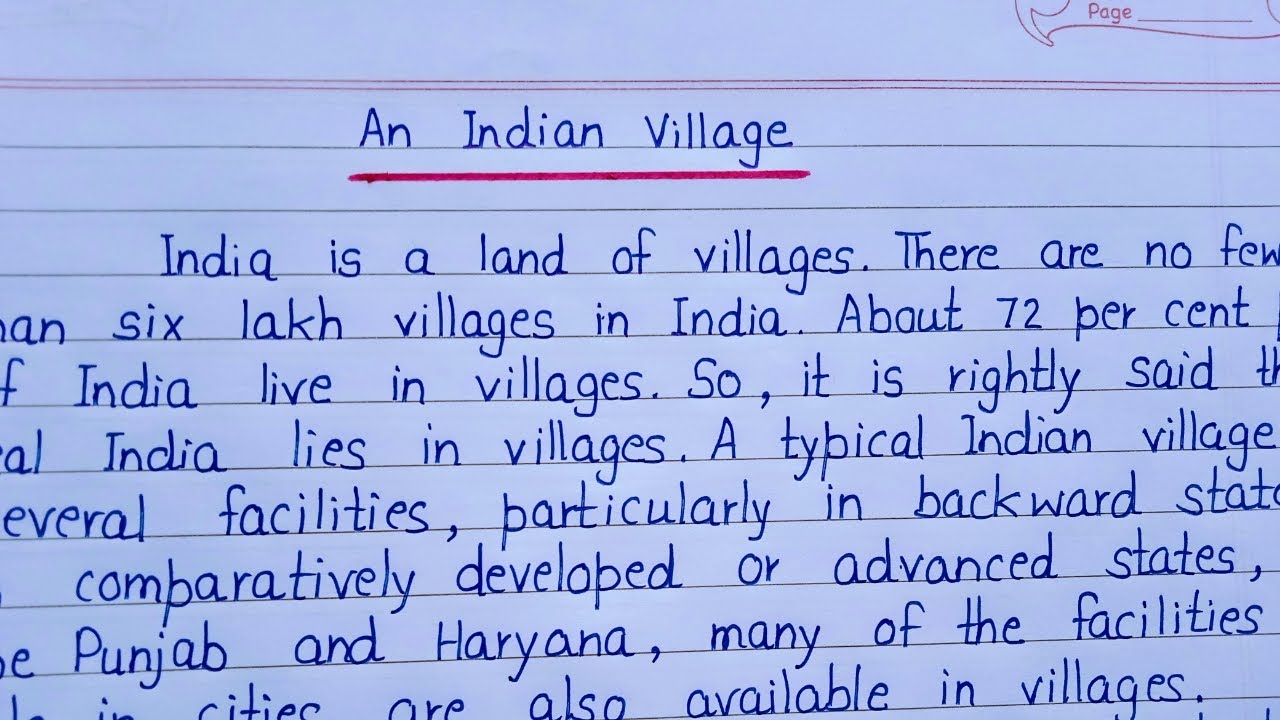 Page
An Indian Village
India is a land of villages. There are no few
an six lakh villages in India. About 72 per cent
f India live in villages. So, it is rightly said th
al India lies in villages. A typical Indian village
everal facilities, particularly in backward stat
comparatively developed or advanced states,
e Punjab and Haryana, many of the facilities
in cities are also available in villages.